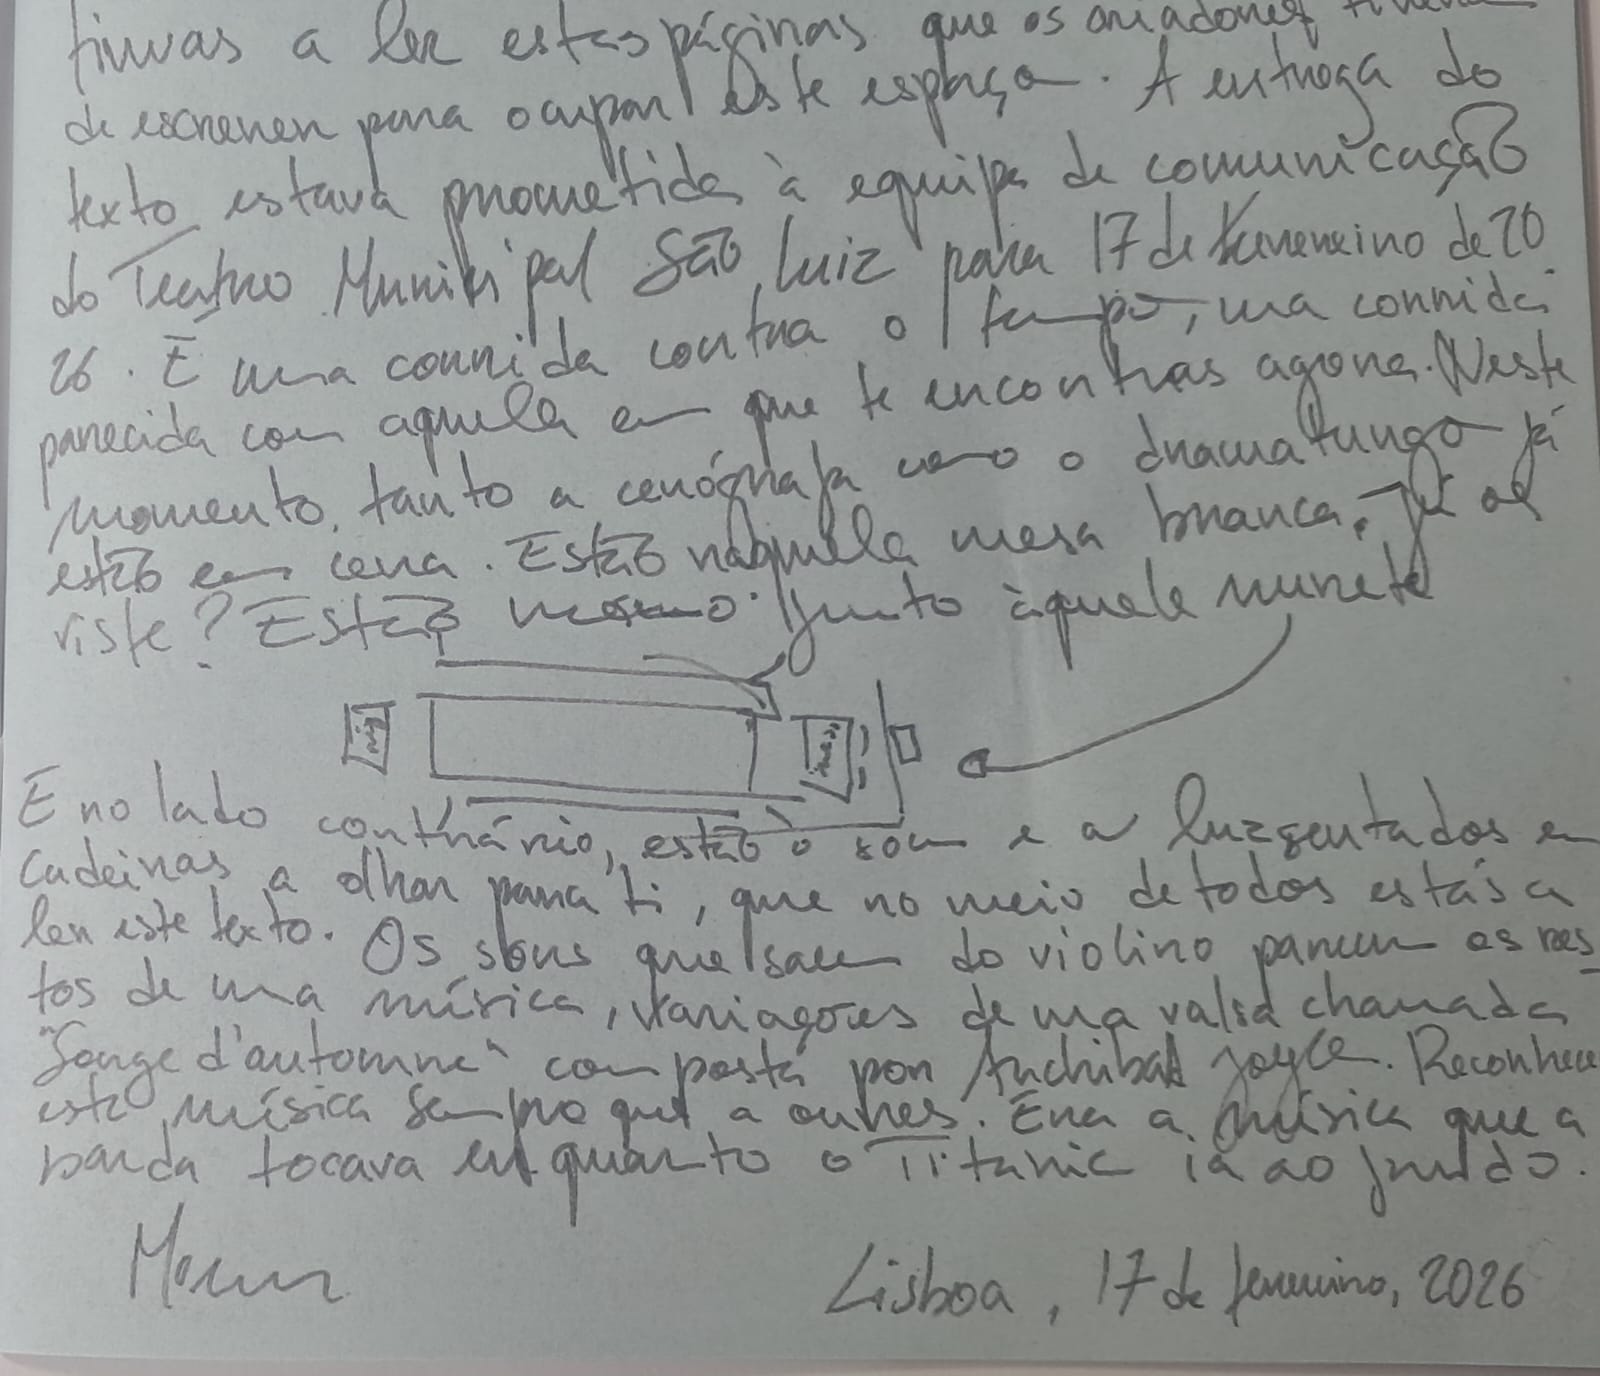 a ler estas páginas que os criadores
de escrever para ocupar este espaço. A entrega do
texto estava prometida à equipa de comunicação
do Teatro Municipal São Luiz para 17 de Fevereiro de 20
26. É uma corrida contra o tempo, uma corrida
parecida com aquela em que te encontras agora. Neste
momento, tanto a cenógrafa como o dramaturgo já
estão em cena. Estão naquela mesa branca. Já os
viste? Estão mesmo junto àquele
E no lado contrário, estão o som e a luz sentados em
cadeiras a olhar para ti, que no meio de todos estás a
ler este texto. Os sons que saem do violino parecem os res
tos de uma música, variações de uma valsa chamada
"Songe d'automne" composta por Archibald Joyce. Reconhece
esta música sempre que a ouvires. Era a música que a
banda tocava enquanto o Titanic ia ao fundo.
Lisboa, 17 de fevereiro, 2026